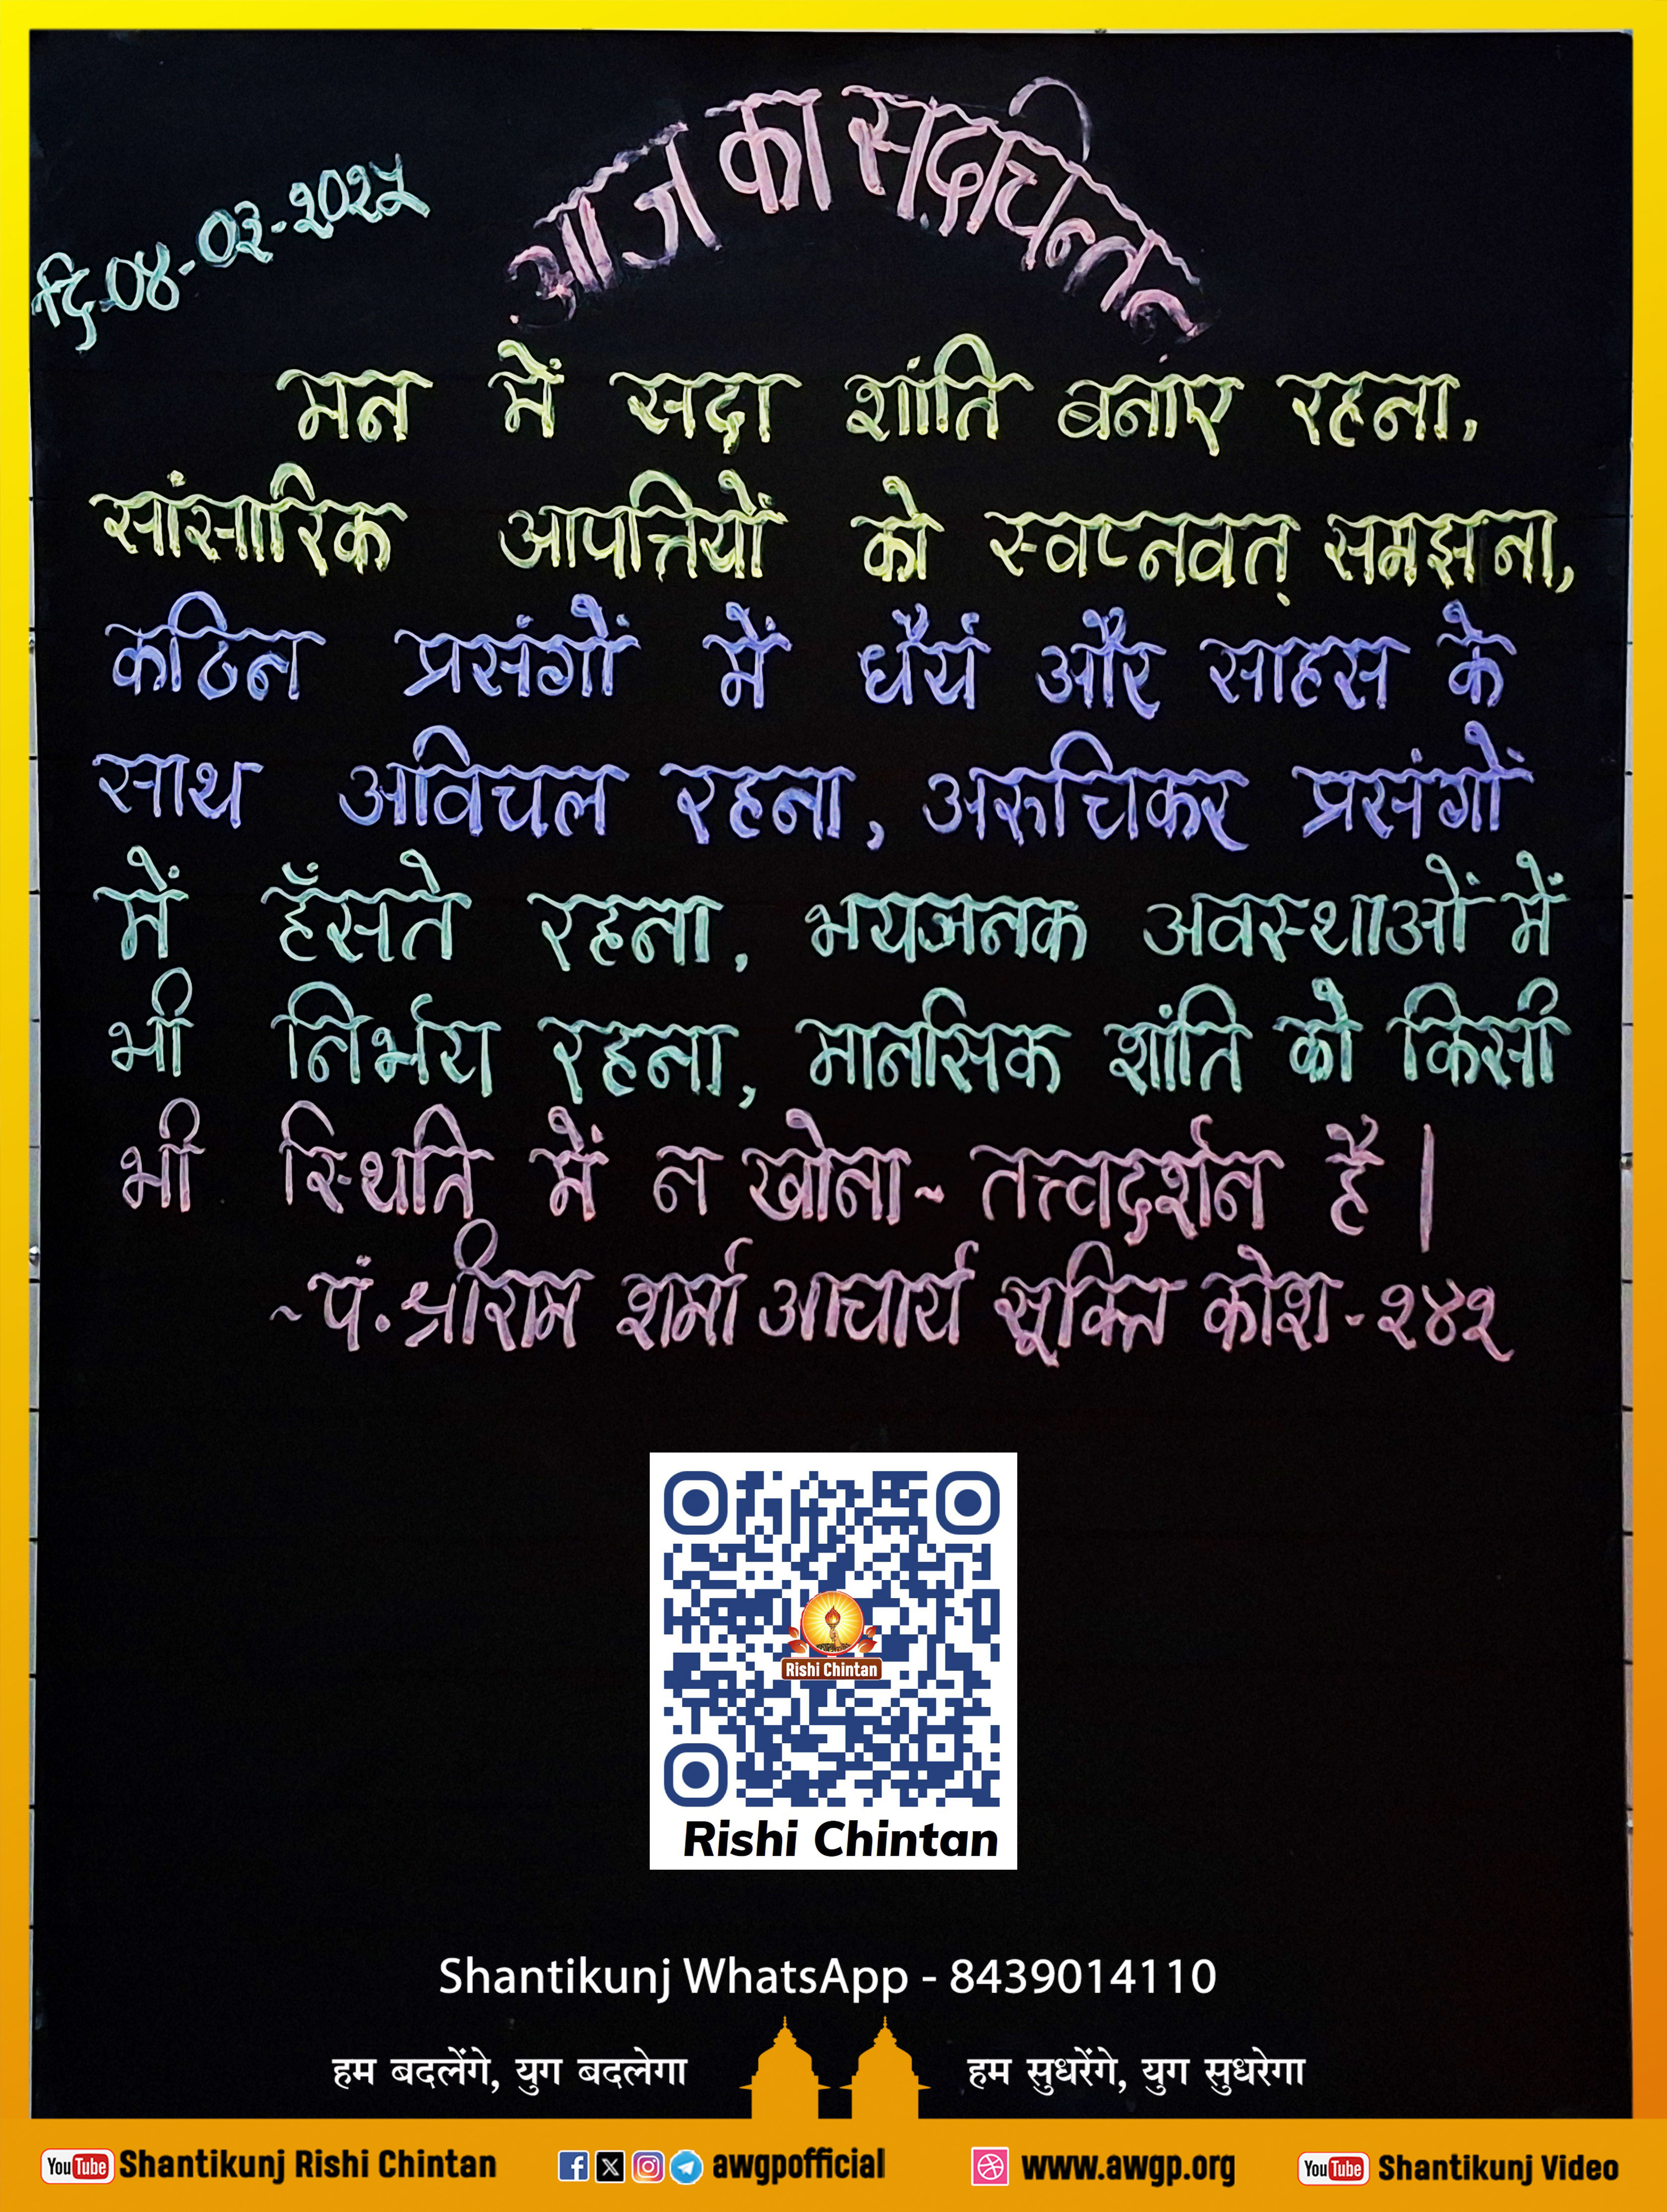 आज का सद्चिन्तन
दि.०४-०३-२०२५
मन में सदा शांति बनाए रहना,
सांसारिक आपत्तियों को स्वप्नवत् समझना,
कठिन प्रसंगों में धैर्य और साहस के
साथ अविचल रहना, अरुचिकर प्रसंगों
में हँसते रहना, भयजनक अवस्थाओं में
भी निर्भय रहना, मानसिक शांति को किसी
भी स्थिति में न खोना~ तत्त्वदर्शन है।
~पं.श्रीराम शर्मा आचार्य सूक्ति कोश-२४२
Rishi Chintan
Rishi Chintan
Shantikunj WhatsApp - 8439014110
हम बदलेंगे, युग बदलेगा हम सुधरेंगे, युग सुधरेगा
YouTube Shantikunj Rishi Chintan awgpofficial www.awgp.org YouTube Shantikunj Video